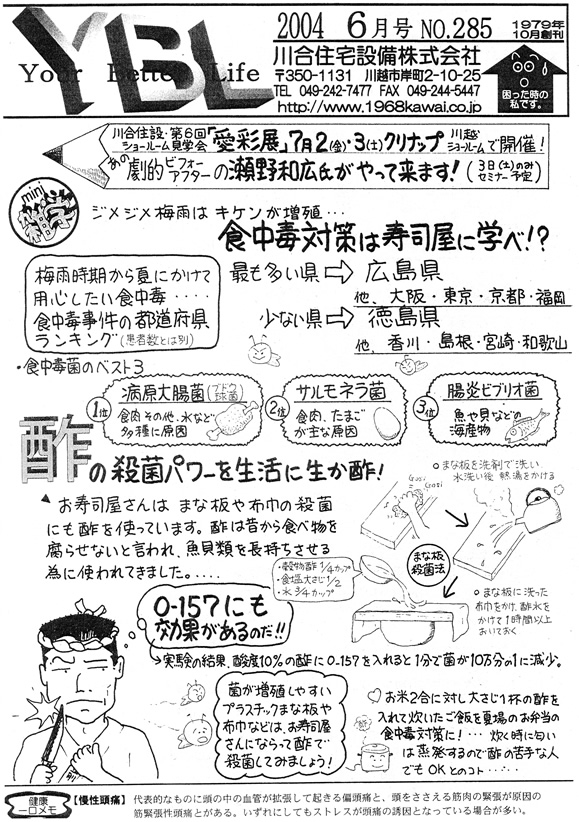 YBL
Your Better Life
2004 6月号 NO.285
1979年
10月創刊
川合住宅設備株式会社
〒350-1131 川越市岸町2-10-25
TEL 049-242-7477 FAX 049-244-5447
http://www.1968kawai.co.jp
困った時の
私です。
川合住設・第6回
ショールーム見学会「愛彩展」7月2(金)・3(土)クリナップ 川越ショールームで開催!
あの劇的ビフォーアフターの瀬野和広氏がやって来ます!(3日(土)のみセミナー予定)
mini
ジメジメ梅雨は キケンが増殖…
食中毒対策は寿司屋に学べ!?
梅雨時期から夏にかけて
用心したい食中毒‥‥
食中毒事件の都道府県
ランキング(患者数とは別)
最も多い県⇨広島県
他、大阪・東京・京都・福岡
少ない県⇨徳島県
他、香川・島根・宮崎・和歌山
・食中毒菌のベスト3
1位 病原大腸菌(ブドウ球菌)
食肉その他、水など
多種に原因
2位 サルモネラ菌
食肉、たまご
が主な原因
3位 腸炎ビブリオ菌
魚や貝などの
海産物
酢の殺菌パワーを生活に生か酢!
お寿司屋さんは まな板や布巾の殺菌
にも酢を使っています。酢は昔から食べ物を
腐らせないと言われ、魚貝類を長持ちさせる
為に使われてきました。‥‥
○まな板を洗剤で洗い
水洗い後 熱湯をかける
Gosi Gosi
まな板
殺菌法
・穀物酢 1/4カップ
・食塩 大さじ1/2
・水 3/4カップ
○まな板に洗った
布巾をかけ、酢水を
かけて1時間以上
おいておく
O-157にも
効果があるのだ!!
→実験の結果、酸度10%の酢にO-157を入れると1分で菌が10万分の1に減少。
菌が増殖しやすい
プラスチックまな板や
布巾などは、お寿司屋
さんにならって酢で
殺菌してみましょう!
♡お米2合に対し大さじ1杯の酢を
入れて炊いたご飯を夏場のお弁当の
食中毒対策に!… 炊く時に匂い
は蒸発するので酢の苦手な人
でもOKとのコト‥‥
健康
一口メモ
【慢性頭痛】代表的なものに頭の中の血管が拡張して起きる偏頭痛と、頭をささえる筋肉の緊張が原因の
筋緊張性頭痛とがある。いずれにしてもストレスが頭痛の誘因となっている場合が多い。